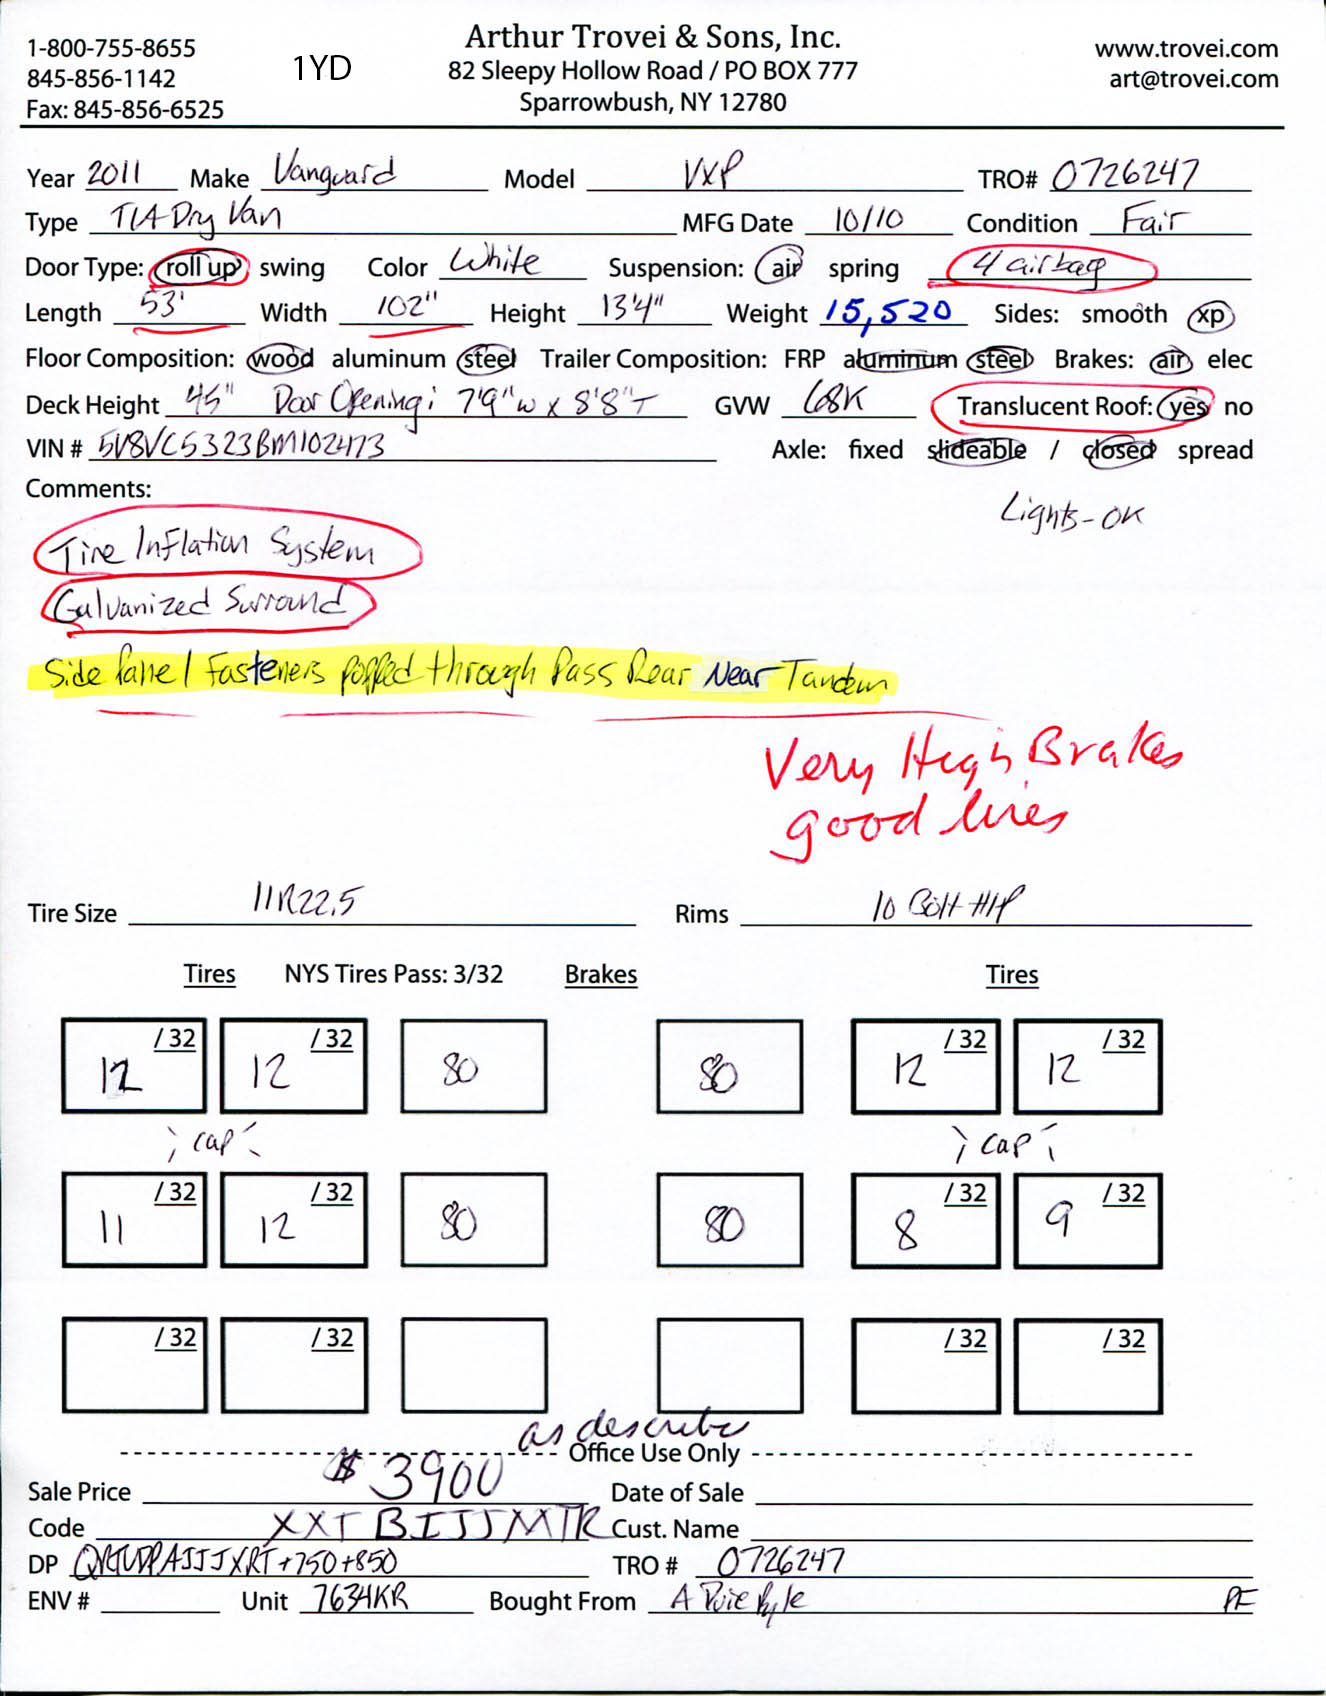 1-800-755-8655
845-856-1142
Fax: 845-856-6525
1YD
Arthur Trovei & Sons, Inc.
82 Sleepy Hollow Road / PO BOX 777
Sparrowbush, NY 12780
www.trovei.com
art@trovei.com
Year 2011 Make Vanguard Model VXP TRO# 0726247
Type T/A Dry Van MFG Date 10/10 Condition Fair
Door Type: roll up swing Color White Suspension: air spring 4 airbag
Length 53' Width 102" Height 13'4" Weight 15,520 Sides: smooth xp
Floor Composition: wood aluminum steel Trailer Composition: FRP aluminum steel Brakes: air elec
Deck Height 45" Door Opening: 7'9"W x 8'8"T GVW 68K Translucent Roof: yes no
VIN # 5V8VC5323BM102473 Axle: fixed slideable / closed spread
Comments:
Lights-OK
Tire Inflation System
Galvanized Surround
Side Panel Fasteners popped through Pass Rear Near Tandem
Very High Brakes
good tires
Tire Size 11R22.5 Rims 10 Bolt HP
Tires NYS Tires Pass: 3/32 Brakes Tires
12 /32 12 /32 80 80 12 /32 12 /32
cap cap
11 /32 12 /32 80 80 8 /32 9 /32
/32 /32 /32 /32
as describe
Office Use Only
Sale Price $ 3900 Date of Sale
Code XXT BIJJMTR Cust. Name
DP +750+850 TRO # 0726247
ENV # Unit 7634KR Bought From A PE